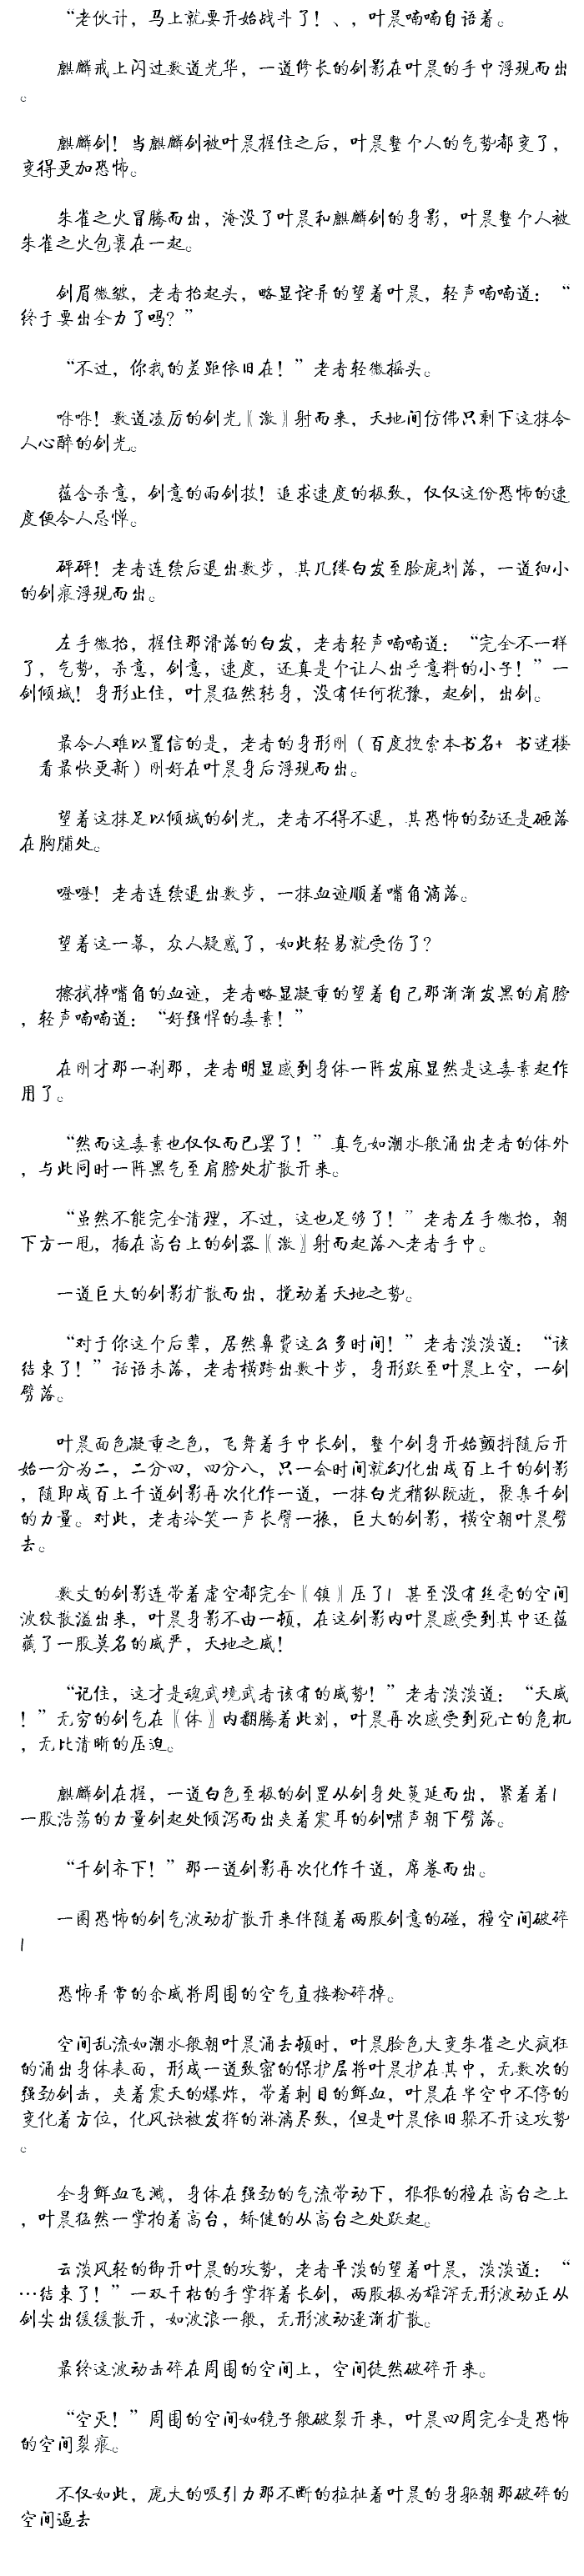 “老伙计，马上就要开始战斗了！、，叶晨喃喃自语着。
麒麟戒上闪过数道光华，一道修长的剑影在叶晨的手中浮现而出
。
麒麟剑！当麒麟剑被叶晨握住之后，叶晨整个人的气势都变了，
变得更加恐怖。
朱雀之火冒腾而出，淹没了叶晨和麒麟剑的身影，叶晨整个人被
朱雀之火包裹在一起。
剑眉微皱，老者抬起头，略显诧异的望着叶晨，轻声喃喃道：“
终于要出全力了吗？”
“不过，你我的差距依旧在！”老者轻微摇头。
咻咻！数道凌厉的剑光〖激〗射而来，天地间仿佛只剩下这抹令
人心醉的剑光。
蕴含杀意，剑意的雨剑技！追求速度的极致，仅仅这份恐怖的速
度便令人忌惮。
砰砰！老者连续后退出数步，其几缕白发至脸庞划落，一道细小
的剑痕浮现而出。
左手微抬，握住那滑落的白发，老者轻声喃喃道：“完全不一样
了，气势，杀意，剑意，速度，还真是个让人出乎意料的小子！”一
剑倾城！身形止住，叶晨猛然转身，没有任何犹豫，起剑，出剑。
最令人难以置信的是，老者的身形刚（百度搜索本书名+ 书迷楼
看最快更新）刚好在叶晨身后浮现而出。
望着这抹足以倾城的剑光，老者不得不退，其恐怖的劲还是砸落
在胸脯处。
噔噔！老者连续退出数步，一抹血迹顺着嘴角滴落。
望着这一幕，众人疑惑了，如此轻易就受伤了？
擦拭掉嘴角的血迹，老者略显凝重的望着自己那渐渐发黑的肩膀
，轻声喃喃道：“好强悍的毒素！”
在刚才那一刹那，老者明显感到身体一阵发麻显然是这毒素起作
用了。
“然而这毒素也仅仅而已罢了！”真气如潮水般涌出老者的体外
，与此同时一阵黑气至肩膀处扩散开来。
“虽然不能完全清理，不过，这也足够了！”老者左手微抬，朝
下方一甩，插在高台上的剑器〖激〗射而起落入老者手中。
一道巨大的剑影扩散而出，搅动着天地之势。
“对于你这个后辈，居然鼻费这么多时间！”老者淡淡道：“该
结束了！”话语未落，老者横跨出数十步，身形跃至叶晨上空，一剑
劈落。
叶晨面色凝重之色，飞舞着手中长剑，整个剑身开始颤抖随后开
始一分为二，二分四，四分八，只一会时间就幻化出成百上千的剑影
，随即成百上千道剑影再次化作一道，一抹白光稍纵既逝，聚集千剑
的力量。对此，老者冷笑一声长臂一振，巨大的剑影，横空朝叶晨劈
去。
数丈的剑影连带着虚空都完全〖镇〗压了| 甚至没有丝毫的空间
波纹散溢出来，叶晨身影不由一顿，在这剑影内叶晨感受到其中还蕴
藏了一股莫名的威严，天地之威！
“记住，这才是魂武境武者该有的威势！”老者淡淡道：“天威
！”无穷的剑气在〖体〗内翻腾着此刻，叶晨再次感受到死亡的危机
，无比清晰的压迫。
麒麟剑在握，一道白色至极的剑罡从剑身处蔓延而出，紧着着|
一股浩荡的力量剑起处倾泻而出夹着震耳的剑啸声朝下劈落。
“千剑齐下！”那一道剑影再次化作千道，席卷而出。
一圈恐怖的剑气波动扩散开来伴随着两股剑意的碰，撞空间破碎
|
恐怖异常的余威将周围的空气直接粉碎掉。
空间乱流如潮水般朝叶晨涌去顿时，叶晨脸色大变朱雀之火疯狂
的涌出身体表面，形成一道致密的保护层将叶晨护在其中，无数次的
强劲剑击，夹着震天的爆炸，带着刺目的鲜血，叶晨在半空中不停的
变化着方位，化风诀被发挥的淋漓尽致，但是叶晨依旧躲不开这攻势
。
全身鲜血飞溅，身体在强劲的气流带动下，狠狠的撞在高台之上
，叶晨猛然一掌拍着高台，矫健的从高台之处跃起。
云淡风轻的御开叶晨的攻势，老者平淡的望着叶晨，淡淡道：“
…结束了！”一双干枯的手掌挥着长剑，两股极为雄浑无形波动正从
剑尖出缓缓散开，如波浪一般，无形波动逐渐扩散。
最终这波动击碎在周围的空间上，空间徒然破碎开来。
“空灭！”周围的空间如镜子般破裂开来，叶晨四周完全是恐怖
的空间裂痕。
不仅如此，庞大的吸引力那不断的拉扯着叶晨的身躯朝那破碎的
空间逼去